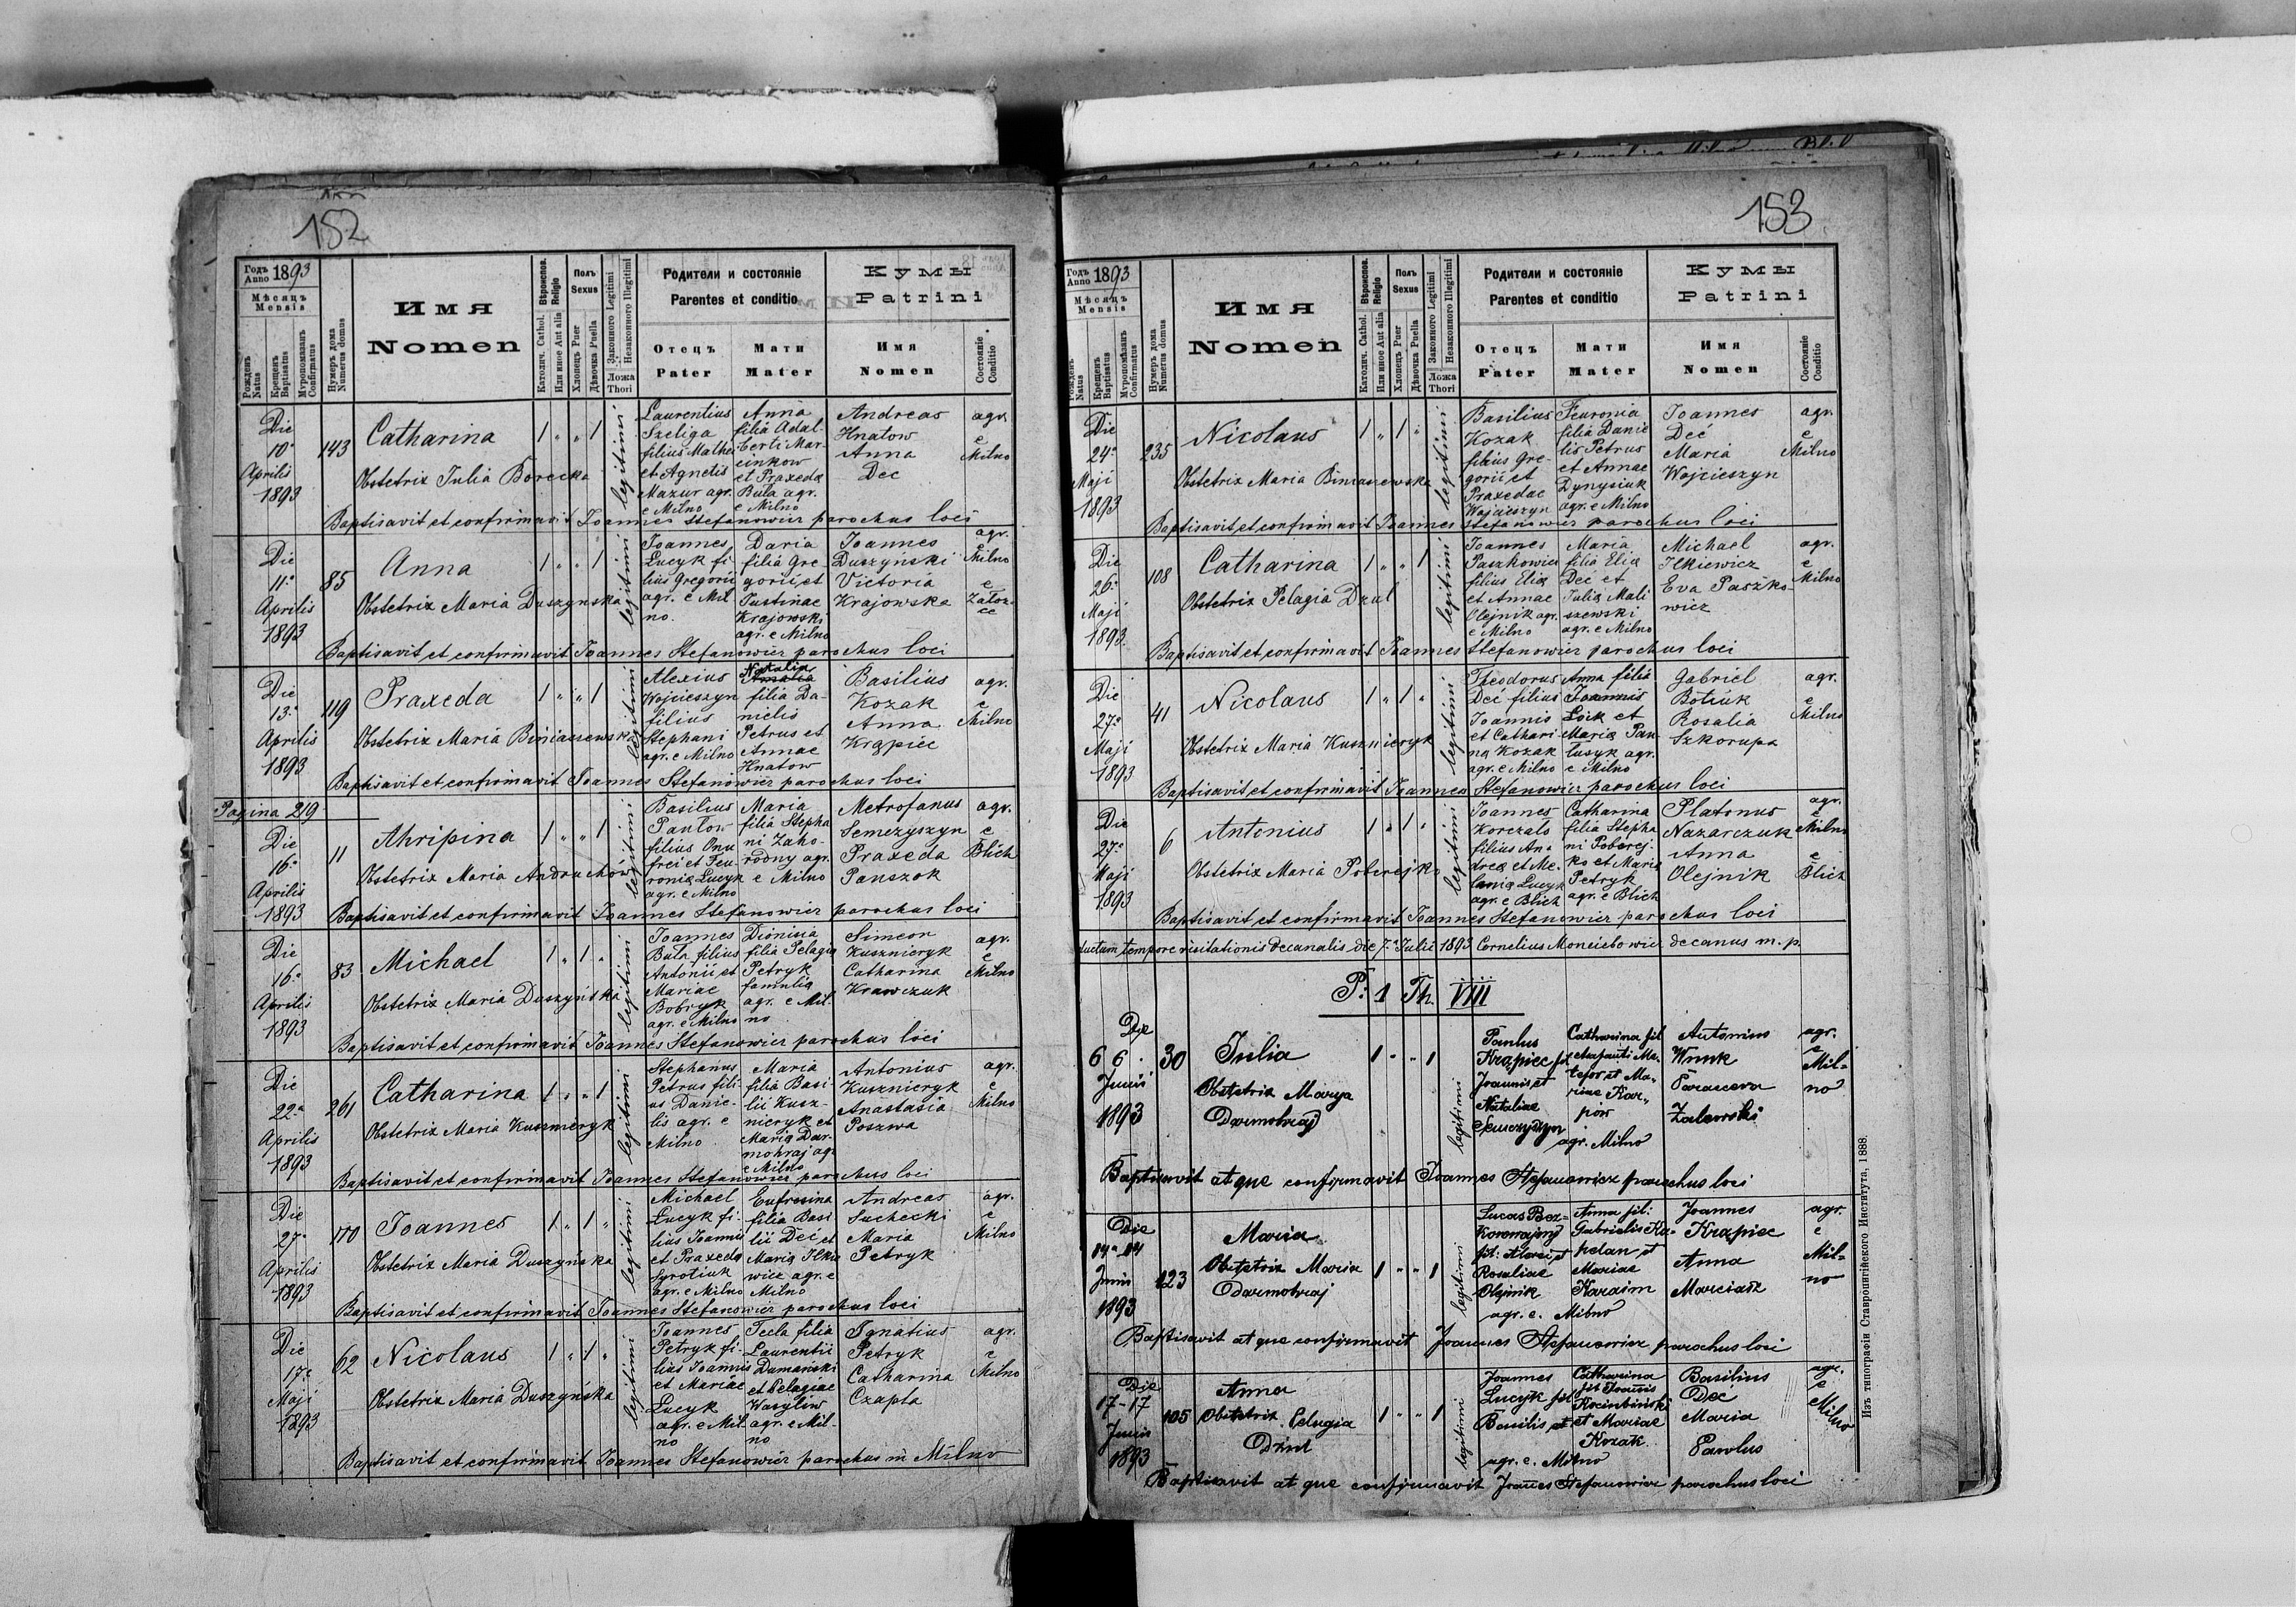 152
Годъ Anno 1893
Мѣсяцъ Mensis
Рожденъ Natus
Крещенъ Baptisatus
Мѵропомазанъ Confirmatus
Нумеръ дома Numerus domus
Имя
Nomen
Вѣроиспов. Religio
Католич. Cathol.
Или иное Aut alia
Полъ Sexus
Хлопецъ Puer
Дѣвочка Puella
Законного Legitimi
Незаконного Illegitimi
Ложа Thori
Родители и состояніе
Parentes et conditio
Отецъ Pater
Мати Mater
Кумы
Patrini
Имя Nomen
Состояніе Conditio
Die 10a Aprilis 1893
143
Catharina
1 " " 1
legitimi
Obstetrix Julia Borecka
Laurentius Szeliga filius Mathei et Agnetis Mazur agr. e Milno
Anna filia Adalberti Marcinkow et Praxedæ Bula agr. e Milno
Andreas Hnatow
Anna Dec
agr. e Milno
Baptisavit et confirmavit Joannes Stefanowicz parochus loci
Die 11a Aprilis 1893
85
Anna
1 " " 1
legitimi
Obstetrix Maria Duszyńska
Joannes Łucyk filius Gregorii agr. e Milno.
Daria filia Gregorii et Justinae Krajowski agr. e Milno
Joannes Duszyński
Victoria Krajowska
agr. e Milno
e Założce
Baptisavit et confirmavit Joannes Stefanowicz parochus loci
Die 13a Aprilis 1893
119
Praxeda
1 " " 1
legitimi
Obstetrix Maria Biniaszewski
Alexius Wojcieszyn filius Stephani agr. e Milno
Natalia
Amalia
filia Danielis Petrus et Annae Hnatow
Basilius Kozak
Anna Krąpiec
agr. e Milno
Baptisavit et confirmavit Joannes Stefanowicz parochus loci
Pagina 219
Die 16a Aprilis 1893
11
Ahripina
1 " " 1
legitimi
Obstetrix Maria Andruchów
Basilius Pawłow filius Onufrei et Feuroniæ Łucyk agr. e Milno
Maria filia Stephani Zahorodny agr. e Milno
Metrofanus Semczyszyn
Praxeda Panszok
agr. e Blich
Baptisavit et confirmavit Joannes Stefanowicz parochus loci
Die 16a Aprilis 1893
83
Michael
1 " 1 "
legitimi
Obstetrix Maria Duszyńska
Joannes Bula filius Antonii et Mariae Bobryk agr. e Milno
Dionisia filia Pelagiæ Petryk famulæ agr. e Milno
Simeon Kusznieryk
Catharina Krawczuk
agr. e Milno
Baptisavit et confirmavit Joannes Stefanowicz parochus loci
Die 22a Aprilis 1893
261
Catharina
1 " " 1
legitimi
Obstetrix Maria Kusznieryk
Stephanus Petrus filius Danielis agr. e Milno
Maria filia Basilii Kusznieryk et Mariæ Darmohraj agr. e Milno
Antonius Kusznieryk
Anastasia Poszwa
agr. e Milno
Baptisavit et confirmavit Joannes Stefanowicz parochus loci
Die 27a Aprilis 1893
170
Joannes
1 " 1 "
legitimi
Obstetrix Maria Duszyńska
Michael Łucyk filius Joannis et Praxedæ Syrotiuk agr. e Milno
Eufrosina filia Basilii Deć et Mariæ Ilkiewicz agr. e Milno
Andreas Suchecki
Maria Petryk
agr. e Milno
Baptisavit et confirmavit Joannes Stefanowicz parochus loci
Die 17a Maji 1893
62
Nicolaus
1 " 1 "
legitimi
Obstetrix Maria Duszyńska
Joannes Petryk filius Joannis et Mariae Łucyk agr. e Milno
Tecla filia Laurentii Dumański et Pelagiae Wasyliw agr. e Milno
Ignatius Petryk
Catharina Czapla
agr. e Milno
Baptisavit et confirmavit Joannes Stefanowicz parochus in Milno
153
Годъ Anno 1893
Мѣсяцъ Mensis
Рожденъ Natus
Крещенъ Baptisatus
Мѵропомазанъ Confirmatus
Нумеръ дома Numerus domus
Имя
Nomen
Вѣроиспов. Religio
Католич. Cathol.
Или иное Aut alia
Полъ Sexus
Хлопецъ Puer
Дѣвочка Puella
Законного Legitimi
Незаконного Illegitimi
Ложа Thori
Родители и состояніе
Parentes et conditio
Отецъ Pater
Мати Mater
Кумы
Patrini
Имя Nomen
Состояніе Conditio
Die 24a Maji 1893
235
Nicolaus
1 " 1 "
legitimi
Obstetrix Maria Biniaszewska
Basilius Kozak filius Gregorii et Praxedae Wojcieszyn
Feuronia filia Danielis Petrus et Annae Dynysiuk agr. e Milno
Joannes Deć
Maria Wojcieszyn
agr. e Milno
Baptisavit et confirmavit Joannes Stefanowicz parochus loci
Die 26a Maji 1893
108
Catharina
1 " " 1
legitimi
Obstetrix Pelagia Dzul
Joannes Paszkowicz filius Eliæ et Annae Olejnik agr. e Milno
Maria filia Eliæ Dec et Juliæ Maliszewski agr. e Milno
Michael Ilkiewicz
Eva Paszkowicz
agr. e Milno
Baptisavit et confirmavit Joannes Stefanowicz parochus loci
Die 27a Maji 1893
41
Nicolaus
1 " 1 "
legitimi
Obstetrix Maria Kusznieryk
Theodorus Deć filius Joannis et Catharinæ Kozak agr. e Milno
Anna filia Joannis Łoik et Mariæ Panłusyk agr. e Milno
Gabriel Botiuk
Rosalia Szkorupa
agr. e Milno
Baptisavit et confirmavit Joannes Stefanowicz parochus loci
Die 27a Maji 1893
6
Antonius
1 " 1 "
legitimi
Obstetrix Maria Poberejko
Joannes Korczalo filius Andreæ et Melaniæ Łucyk agr. e Blich
Catharina filia Stephani Poberejko et Mariæ Petryk agr. e Blich
Platonus Nazarczuk
Anna Olejnik
agr. e Milno
e Blich
Baptisavit et confirmavit Joannes Stefanowicz parochus loci
ductum tempore visitationis decanalis die 7a Julii 1893 Cornelius decanus m. p.
P: 1 Th. VIII
Die 6 6. Junii 1893
30
Julia
1 " " 1
legitimi
Obstetrix Marya Darmohraj
Paulus Krąpiec fil Joannis et Nataliae Semczyszyn
Catharina fil et Mariae Karpow
agr. Milno
Antonius Wnuk
Parasceva Zalewski
agr. e Milno
Baptisavit atque confirmavit Joannes Stefanowicz parochus loci
Die 14a 14 Junii 1893
123
Maria
1 " " 1
legitimi
Obstetrix Maria Darmohraj
Lucas Bezkorowajnyj fil: Alexei et Rosaliae Olejnik
Anna fil: Gabrielis Kapelan et Mariae Karaim
agr. e. Milno
Joannes Krąpiec
Anna Marciasz
agr. e Milno
Baptisavit atque confirmavit Joannes Stefanowicz parochus loci
Die 17-17 Junii 1893
105
Anna
1 " " 1
legitimi
Obstetrix Pelagia Dziul
Joannes Łucyk fil Basilis et
Catharina fil Joannis Kociubiński et Mariae Kozak
agr. e. Milno
Basilius Deć
Maria Pawlus
agr. e Milno
Baptisavit atque confirmavit Joannes Stefanowicz parochus loci
Изъ типографіи Ставропигійского Института, 1888.